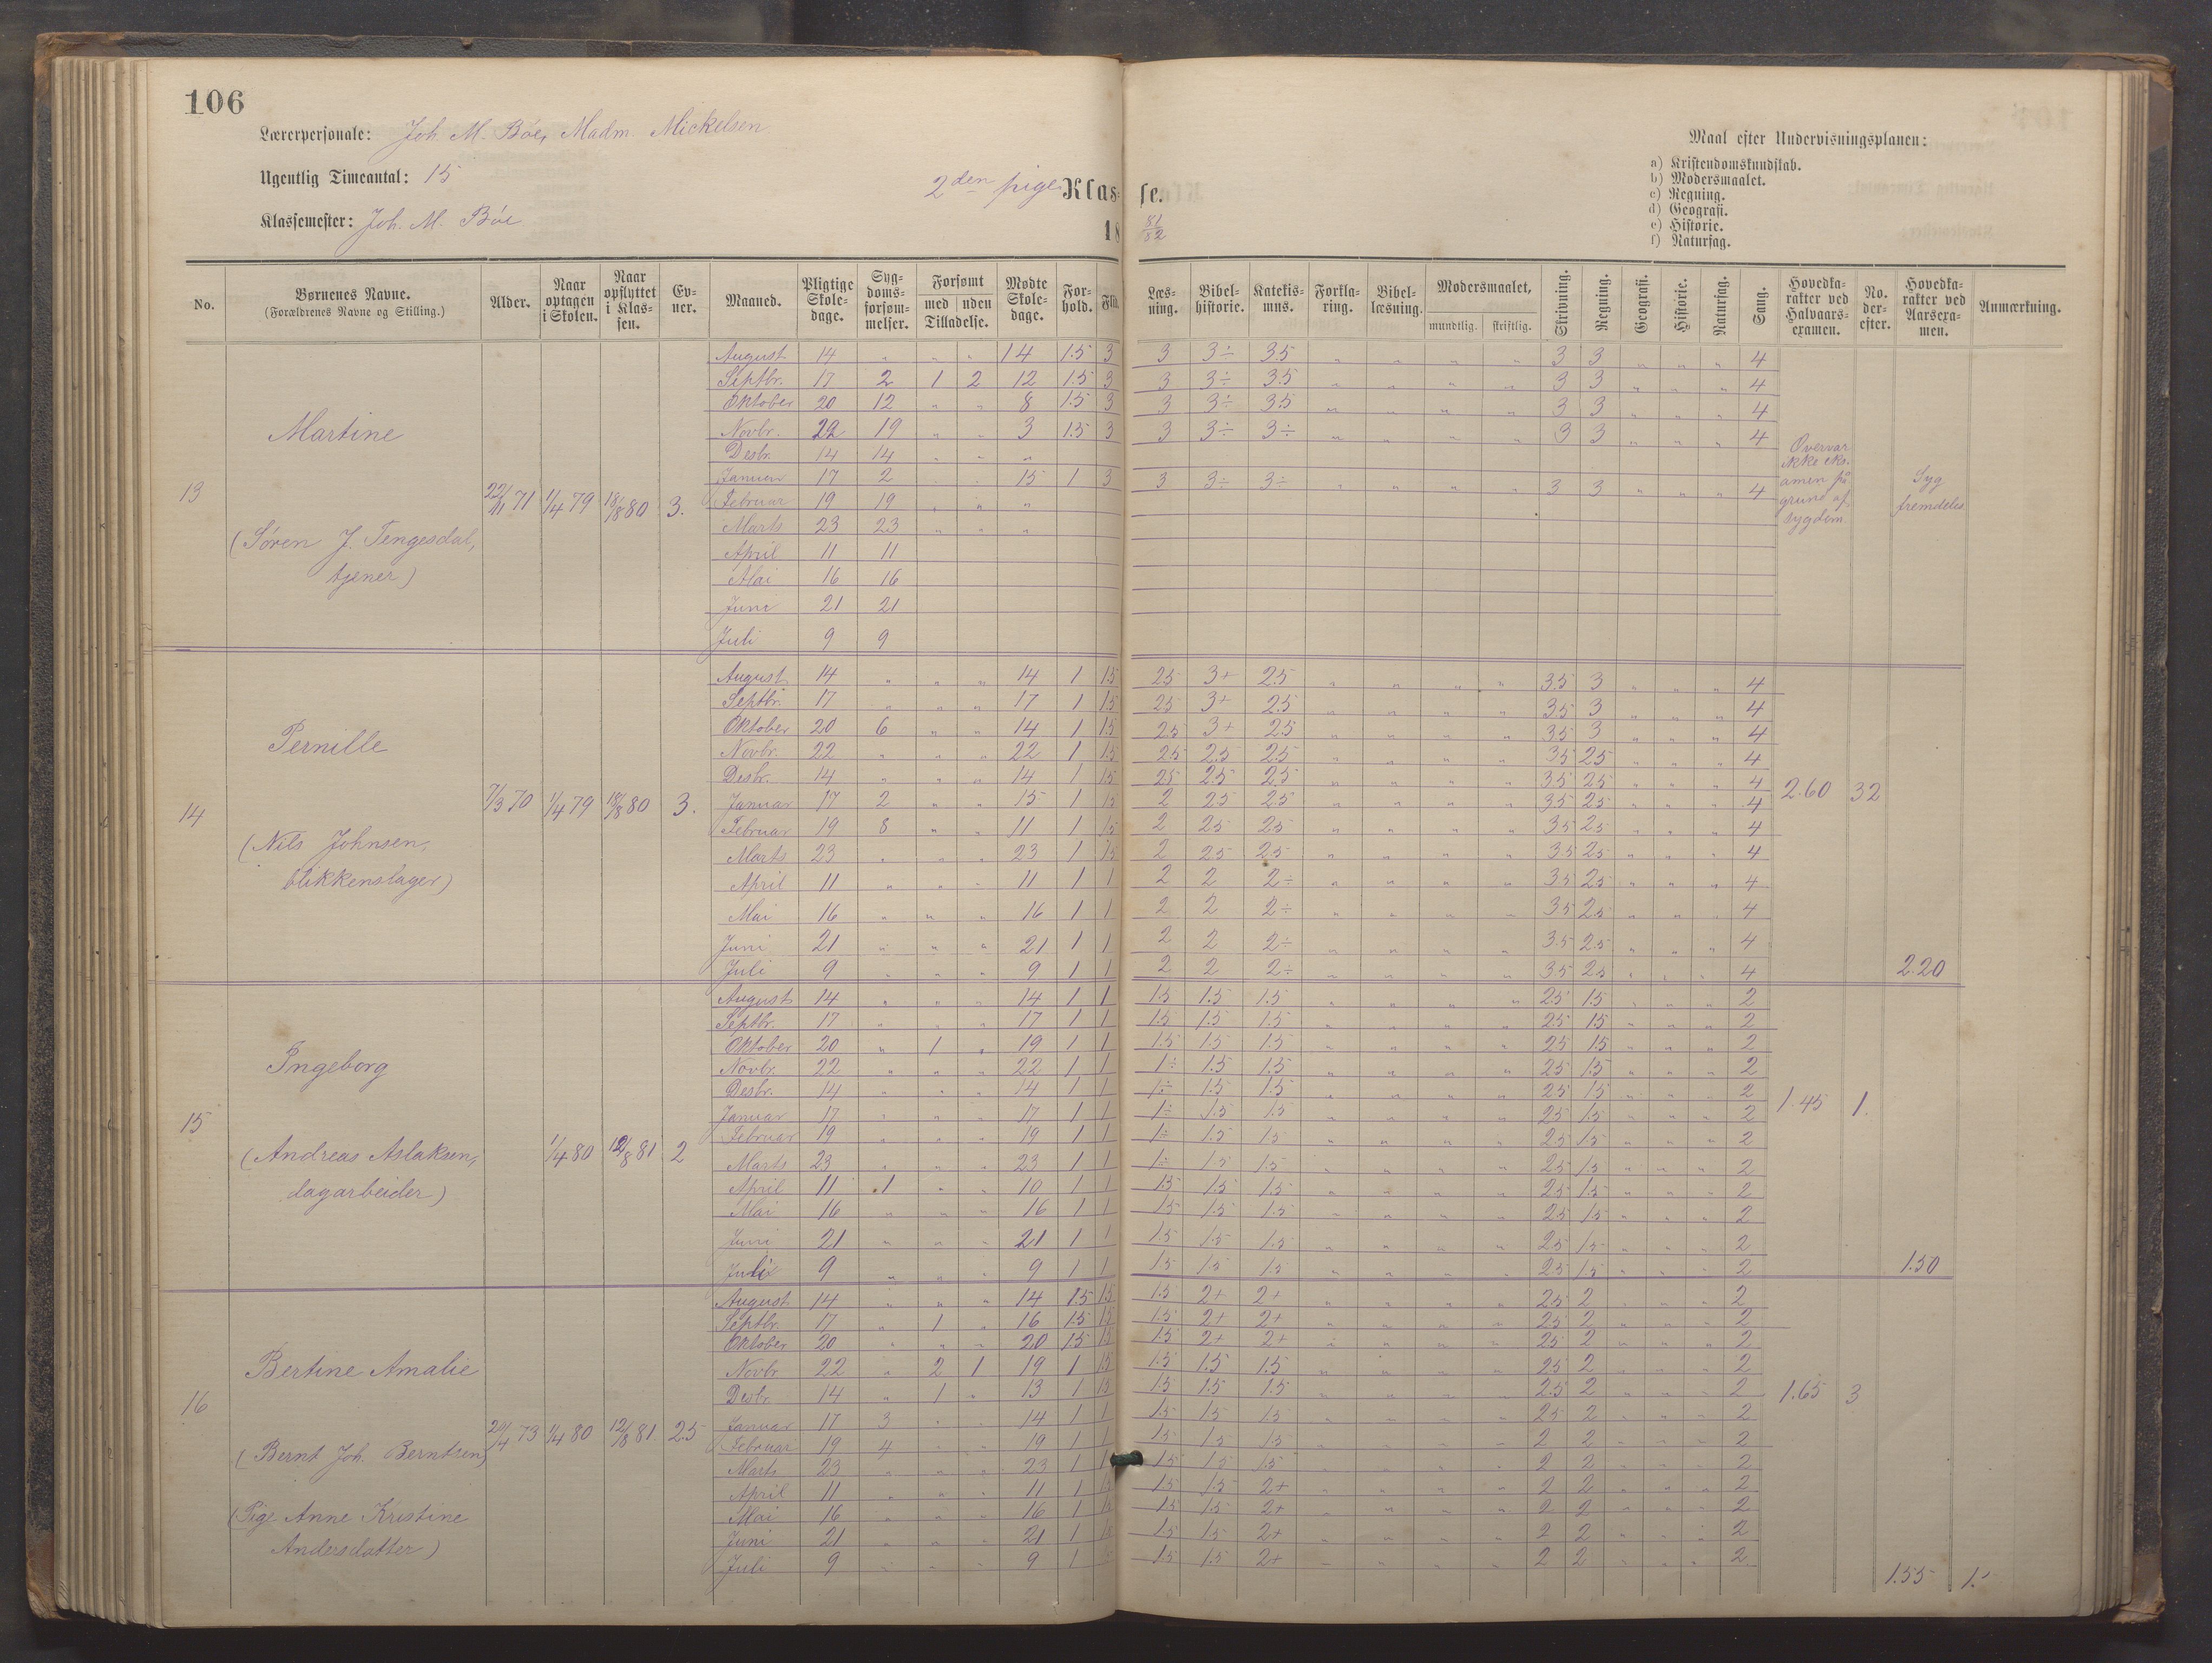 106
Lærerpersonale: Joh. M. Bøe, Madm. Mickelsen
Ugentlig Timeantal: 15
Klassemester: Joh. M. Bøe
2den pige Klasse.
18 81/82
Maal efter Undervisningsplanen:
a) Kristendomskundskab.
b) Modersmaalet.
c) Regning.
d) Geografi.
e) Historie.
f) Naturfag.
No. | Børnenes Navne. (Forældrenes Navne og Stilling.) | Alder. | Naar optagen i Skolen. | Naar opflyttet i Klassen. | Evner. | Maaned. | Pligtige Skoledage. | Sygdomsforsømmelser. | Forsømt med / uden Tilladelse. | Mødte Skoledage. | Forhold. | Flid. | Læsning. | Bibelhistorie. | Katekismus. | Forklaring. | Bibellæsning. | Modersmaalet, mundtlig. skriftlig. | Skrivning. | Regning. | Geografi. | Historie. | Naturfag. | Sang. | Hovedkarakter ved Halvaarsexamen. | No. derefter. | Hovedkarakter ved Aarsexamen. | Anmærkning.
13 Martine (Søren J. Tengesdal, tjener) 22/11 71 1/4 79 18/8 80 3.
August 14 " " " 14 1.5 3 3 3÷ 3.5 " " " " 3 3 " " " 4
Septbr. 17 2 1 2 12 1.5 3 3 3÷ 3.5 " " " " 3 3 " " " 4
Oktober 20 12 " " 8 1.5 3 3 3÷ 3.5 " " " " 3 3 " " " 4
Novbr. 22 19 " " 3 1.5 3 3 3÷ 3÷ " " " " 3 3 " " " 4
Desbr. 14 14 " " "
Januar 17 2 " " 15 1 3 3 3÷ 3÷ " " " " 3 3 " " " 4
Februar 19 19 " " "
Marts 23 23 " " "
April 11 11
Mai 16 16
Juni 21 21
Juli 9 9
Overvar ikke eksamen på grund af sygdom
Syg fremdeles
14 Pernille (Nils Johnsen, blikkenslager) 7/3 70 1/4 79 18/8 80 3.
August 14 " " " 14 1 1.5 2.5 3+ 2.5 " " " " 3.5 3 " " " 4
Septbr. 17 " " " 17 1 1.5 2.5 3+ 2.5 " " " " 3.5 3 " " " 4
Oktober 20 6 " " 14 1 1.5 2.5 3+ 2.5 " " " " 3.5 3 " " " 4
Novbr. 22 " " " 22 1 1.5 2.5 2.5 2.5 " " " " 3.5 2.5 " " " 4
Desbr. 14 " " " 14 1 1.5 2.5 2.5 2.5 " " " " 3.5 2.5 " " " 4
Januar 17 2 " " 15 1 1.5 2 2.5 2.5 " " " " 3.5 2.5 " " " 4
Februar 19 8 " " 11 1 1.5 2 2.5 2.5 " " " " 3.5 2.5 " " " 4
Marts 23 " " " 23 1 1.5 2 2.5 2.5 " " " " 3.5 2.5 " " " 4
April 11 " " " 11 1 1 2 2 2÷ " " " " 3.5 2.5 " " " 4
Mai 16 " " " 16 1 1 2 2 2÷ " " " " 3.5 2.5 " " " 4
Juni 21 " " " 21 1 1 2 2 2÷ " " " " 3.5 2.5 " " " 4
Juli 9 " " " 9 1 1 2 2 2÷ " " " " 3.5 2.5 " " " 4
2.60 32 2.20
15 Ingeborg (Andreas Aslaksen, dagarbeider) 1/4 80 12/8 81 2
August 14 " " " 14 1 1 1.5 1.5 1.5 " " " " 2.5 1.5 " " " 2
Septbr. 17 " " " 17 1 1 1.5 1.5 1.5 " " " " 2.5 1.5 " " " 2
Oktober 20 " 1 " 19 1 1 1.5 1.5 1.5 " " " " 2.5 1.5 " " " 2
Novbr. 22 " " " 22 1 1 1÷ 1.5 1.5 " " " " 2.5 1.5 " " " 2
Desbr. 14 " " " 14 1 1 1÷ 1.5 1.5 " " " " 2.5 1.5 " " " 2
Januar 17 " " " 17 1 1 1÷ 1.5 1.5 " " " " 2.5 1.5 " " " 2
Februar 19 " " " 19 1 1 1÷ 1.5 1.5 " " " " 2.5 1.5 " " " 2
Marts 23 " " " 23 1 1 1÷ 1.5 1.5 " " " " 2.5 1.5 " " " 2
April 11 1 " " 10 1 1 1.5 1.5 1.5 " " " " 2.5 1.5 " " " 2
Mai 16 " " " 16 1 1 1.5 1.5 1.5 " " " " 2.5 1.5 " " " 2
Juni 21 " " " 21 1 1 1.5 1.5 1.5 " " " " 2.5 1.5 " " " 2
Juli 9 " " " 9 1 1 1.5 1.5 1.5 " " " " 2.5 1.5 " " " 2
1.45 1. 1.50
16 Bertine Amalie (Bernt Joh. Berntsen) (Pige Anne Kristine Andersdatter) 1/4 80 12/8 81 2.5
August 14 " " " 14 1.5 1.5 1.5 2+ 2+ " " " " 2.5 2 " " " 2
Septbr. 17 " 1 " 16 1.5 1.5 1.5 2+ 2+ " " " " 2.5 2 " " " 2
Oktober 20 " " " 20 1.5 1.5 1.5 2+ 2+ " " " " 2.5 2 " " " 2
Novbr 22 " 2 1 19 1 1.5 1.5 1.5 1.5 " " " " 2.5 2 " " " 2
Desbr. 14 " 1 " 13 1 1.5 1.5 1.5 1.5 " " " " 2.5 2 " " " 2
Januar 17 3 " " 14 1 1 1.5 1.5 1.5 " " " " 2.5 2 " " " 2
Februar 19 4 " " 19 1 1 1.5 1.5 1.5 " " " " 2 2 " " " 2
Marts 23 " " " 23 1 1 1.5 1.5 1.5 " " " " 2 2 " " " 2
April 11 " " " 11 1 1.5 1.5 1.5 2+ " " " " 2 2 " " " 2
Mai 16 " " " 16 1 1.5 1.5 1.5 2+ " " " " 2 2 " " " 2
Juni 21 " " " 21 1 1.5 1.5 2+ " " " " 2 2 " " " 2
Juli 9 " " " 9 1 1.5 1.5 2+ " " " " 2 2 " " " 2
1.65 3 1.55 1.